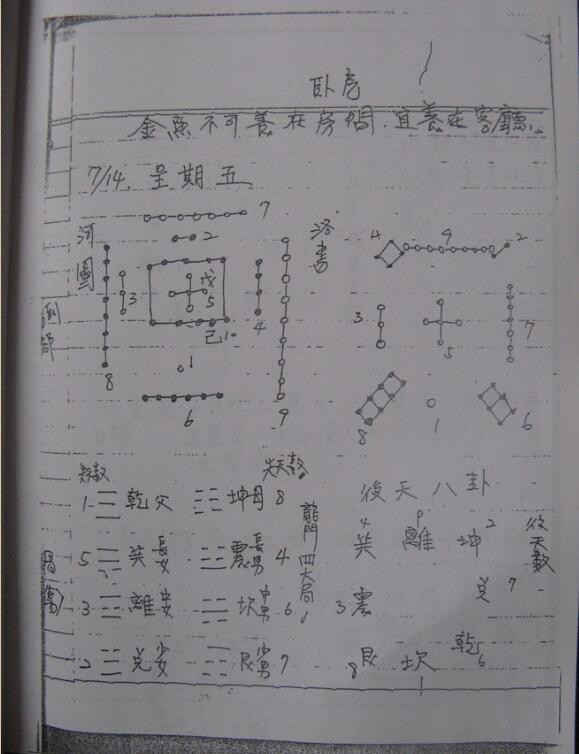 卧房
金魚不可養在房間.宜養在客廳.
7/14 星期五
河圖
7
2
3
戊
5
己10
4
8
1
6
9
洛書
4 9 2
3 5 7
8 1 6
先天数 先天数
1 ☰ 乾父 ☷ 坤母 8
5 ☴ 巽長女 ☳ 震長男 4
3 ☲ 離中女 ☵ 坎中男 6
2 ☱ 兌少女 ☶ 艮少男 7
龍門四大局
後天八卦
4 巽 9 離 坤 2
3 震 兌 7
8 艮 坎 1 乾 6
後天數